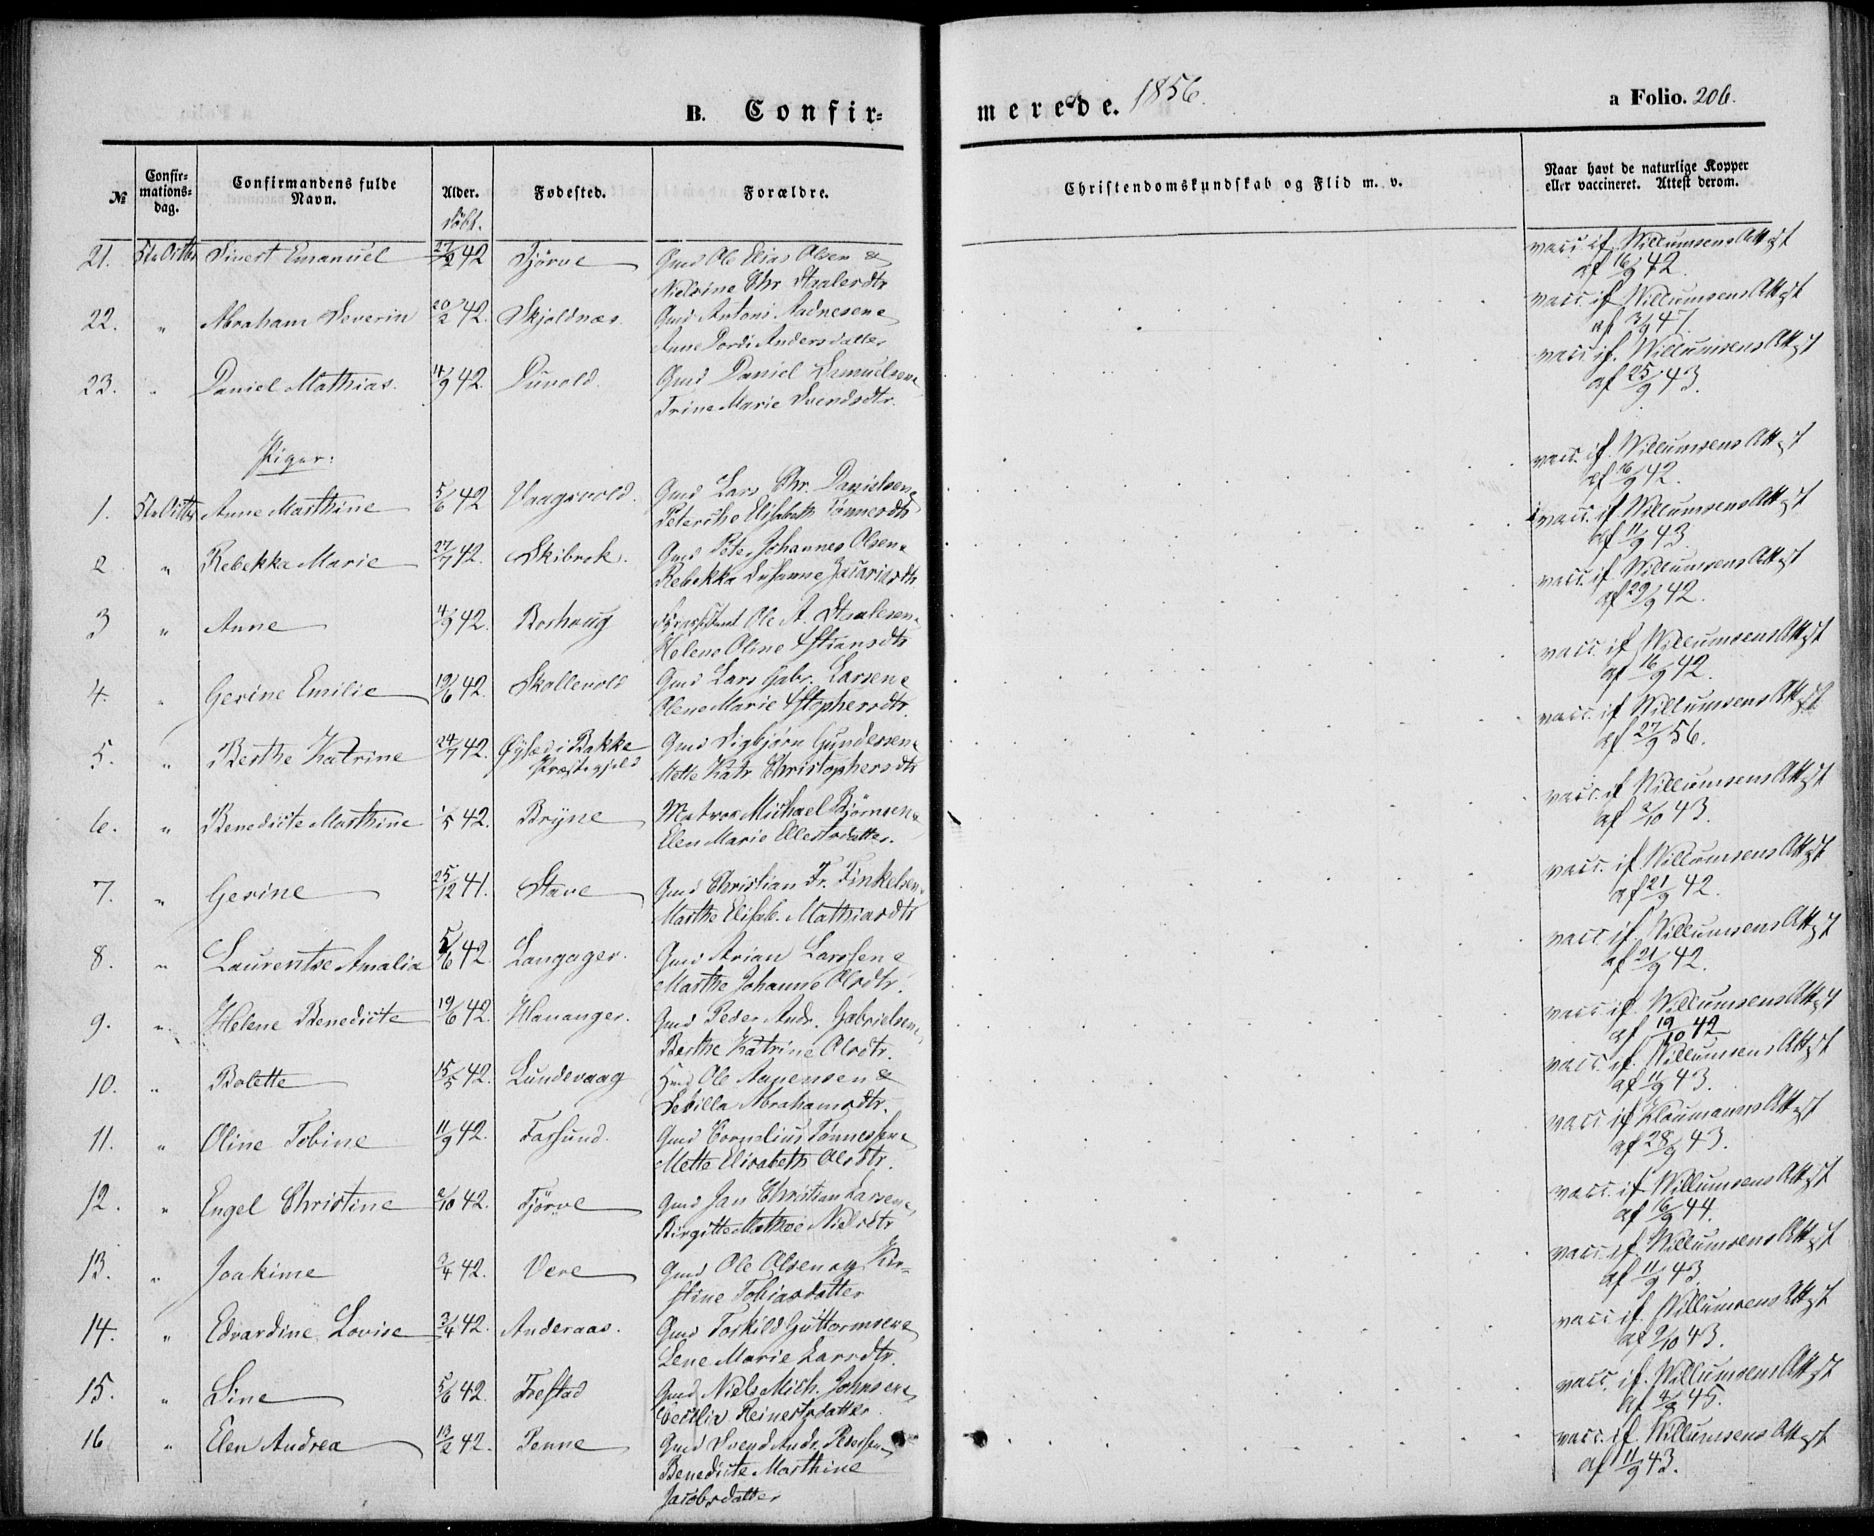 B. Confir=
merede. 1856.
a Folio. 206.
№
Confir-
mations-
dag.
Confirmandens fulde
Navn.
Alder.
döbt.
Fødested.
Forældre.
Christendomskundskab og Flid m. v.
Naar havt de naturlige Kopper
eller vaccineret. Attest derom.
21. 5te Octbr Sivert Emanuel 27/2 42 Tjørve Gmd Ole Elias Olsen &
Nielsine Chr. Staalesdtr
vacc. if. Willumsens Attest
af 16/9 42.
22. " Abraham Severin 20/2 42. Skjoldnæs. Gmd Antoni Aadnesen &
Anne Dordi Andersdatter
vacc. if. Willumsens Attest
af 3/9 47.
23. " Daniel Mathias. 4/9 42. Duvold. Gmd Daniel Samuelsen &
Trine Marie Svendsdtr.
vacc. if. Willumsens Attest
af 25/9 43.
Piger:
1. 5te Octbr Anne Marthine 5/6 42 Vaagsvold. Gmd Lars Chr. Danielsen &
Peterike Elisabeth Tønnesdtr
vacc. if. Willumsens Attest
af 16/9 42.
2 " Rebekka Marie 27/7 42. Skibrok. Gmd Peter Johannes Olsen &
Rebekka Susanne Zacariasdtr
vacc. if Willumsens Attest
af 11/9 43
3 " Anne 4/9 42. Borhaug Ole A. Staalesen &
Helene Oline Xstiansdtr
vacc. if Willumsens Attest
af 29/9 42.
4. " Gerine Emilie 19/6 42. Skollevold Gmd Lars Gabr. Larsen &
Olene Marie Xstophersdtr.
vacc. if Willumsens Attest
af 16/9 42.
5. " Berthe Katrine 24/7 42. Øysæd i Bakke
Præstegjeld
Gmd Sigbjørn Gundersen &
Mette Katr. Christophersdtr
vacc. if Willumsens Attest
af 27/9 56.
6. " Benedicte Marthine 1/5 42. Bryne Matros Michael Bjørnsen &
Elen Marie Ellertsdatter.
vacc. if Willumsens Attest
af 2/10 43.
7. " Gerine 25/12 41. Stave Gmd Christian Fr. Finkelsen &
Marthe Elisab. Mathiasdtr
vacc. if. Willumsens Attest
af 21/9 42.
8. " Laurentse Amalia 5/6 42. Langager. Gmd Arian Larssen &
Marthe Johanne Olsdtr.
vacc if. Willumsens Attest
af 21/9 42.
9. " Helene Benedicte 19/6 42. Hananger. Gmd Peder Andr. Gabrielsen &
Berthe Katrine Olsdtr.
vacc if. Willumsens Attest
af 19/10 42
10. " Bolette 15/5 42. Lundevaag Hmd Ole Aanensen &
Sebilla Abrahamsdtr.
vacc. if. Willumsens Attest
af 11/9 43.
11. " Oline Tobine 11/9 42. Farsund. Gmd Cornelius Tønnessen &
Mette Elisabeth Olsdtr.
vacc if Kloumanns Attest
af 28/9 43.
12. " Engel Christine 2/10 42. Tjørve Gmd Jan Christian Larsen &
Birgitte Mathea Nielsdtr
vacc. if Willumsens Attest
af 16/9 44.
13. " Joakime 3/4 42. Vere Gmd Ole Olsen og Kir-
stine Tobiasdatter
vacc. if. Willumsens Attest
af 11/9 43
14. " Edvardine Lovise 3/4 42. Anderaas. Gmd Torkild Guttormsen &
Lene Marie Larsdtr.
vacc if. Willumsens Attest
af 9/10 43.
15. " Sine 5/6 42. Frestad Gmd Niels Mich. Johnsen &
Cecilia Reinertsdatter
vacc. if. Willumsens Attest
af 4/9 45.
16 " Elen Andrea 13/2 42. Penne Gmd Svend Andr. Pedersen &
Benedicte Marthine
Jacobsdatter
vacc. if. Willumsens Attest
af 11/9 43.